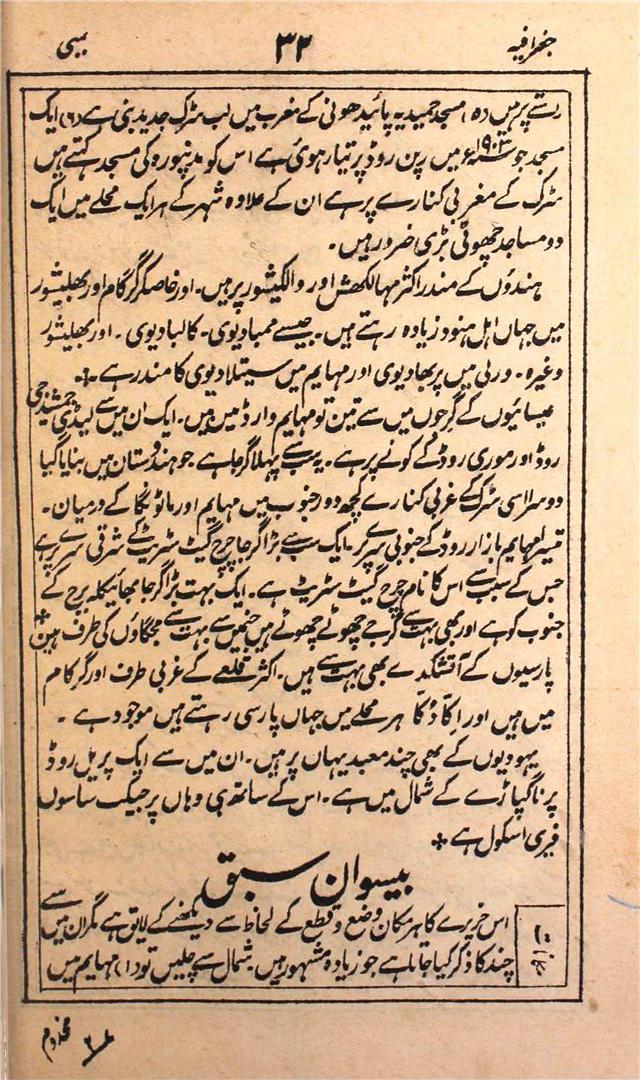 جغرافیہ ۳۲ بمبئی
رستے پر ہیں (۵) مسجد حمیدیہ پائیدھونی کے مغرب میں لب سڑک جدید بنی ہے (۶) ایک
مسجد جو ۱۹۰۳ء میں رپن روڈ پر تیار ہوئی ہے اس کو مدنپورہ کی مسجد کہتے ہیں
سڑک کے مغربی کنارے پر ہے ان کے علاوہ شہر کے ہر ایک محلے میں ایک
دو مساجد چھوٹی بڑی ضرور ہیں۔
ہندوں کے مندر اکثر مہالکھشی اور والکیشور پر ہیں۔ اور خاصکر گرگام اور بھلیشور
میں جہاں اہل ہنود زیادہ رہتے ہیں۔ جیسے ممبادیوی۔ کالبادیوی۔ اور بھلیشور
وغیرہ۔ ورلی میں پربھادیوی اور مہایم میں سیتلادیوی کا مندر ہے۔
عیسائیوں کے گرجوں میں سے تین تو مہایم وارڈ میں ہیں۔ ایک ان میں سے لیڈی جمشیدجی
روڈ اور موری روڈ کے کونے پر ہے۔ یہ سب سے پہلا گرجا ہے جو ہندوستان میں بنایا گیا
دوسرا اسی سڑک کے غربی کنارے کچھ دور جنوب میں مہایم اور ماٹونگا کے درمیان۔
تیسرا مہایم بازار روڈ کے جنوبی سرے پر۔ ایک سب سے بڑا گرجا چرچ گیٹ سٹریٹ کے شرقی سرے پر ہے
جس کے سبب سے اس کا نام چرچ گیٹ سٹریٹ ہے۔ ایک بہت بڑا گرجا بھائیکلہ برج کے
جنوب کو ہے اور بھی بہت سے گرجے چھوٹے چھوٹے ہیں جنمیں سے بہت سے مجگاؤں کی طرف ہیں
پارسیوں کے آتشکدے بھی بہت سے ہیں۔ اکثر قلعے کے غربی طرف اور گرگام
میں ہیں اور اِکّا دُکّا ہر محلے میں جہاں پارسی رہتے ہیں موجود ہے۔
یہودیوں کے بھی چند معبد یہاں پر ہیں۔ ان میں سے ایک پریل روڈ
پر ناگپاڑے کے شمال میں ہے۔ اس کے ساتھ ہی وہاں پر جیکب ساسون
فیری اسکول ہے
بیسواں سبق
اس جزیرے کا ہر مکان وضع و قطع کے لحاظ سے دیکھنے کے لایق ہے مگر ان میں سے
چند کا ذکر کیا جاتا ہے جو زیادہ مشہور ہیں۔ شمال سے چلیں تو (۱) مہایم میں
مخدوم